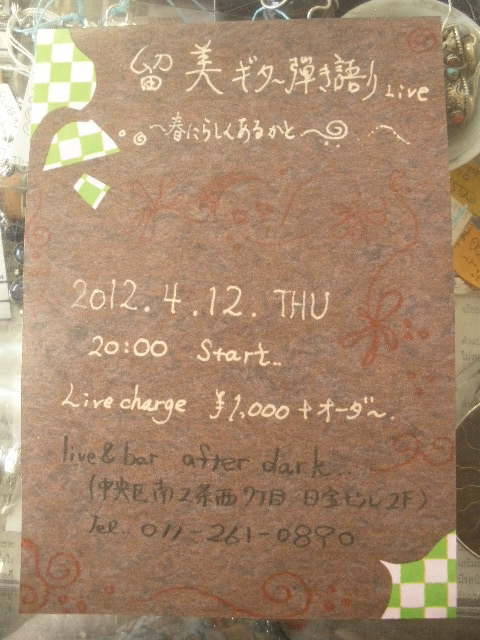 留美 ギター弾き語り Live
～春にらしくあるかと～
2012.4.12. THU
20:00 Start..
Live charge ¥1,000+オーダー.
live & bar after dark...
(中央区南2条西7丁目 日宝ビル2F)
Tel.. 011-261-0890